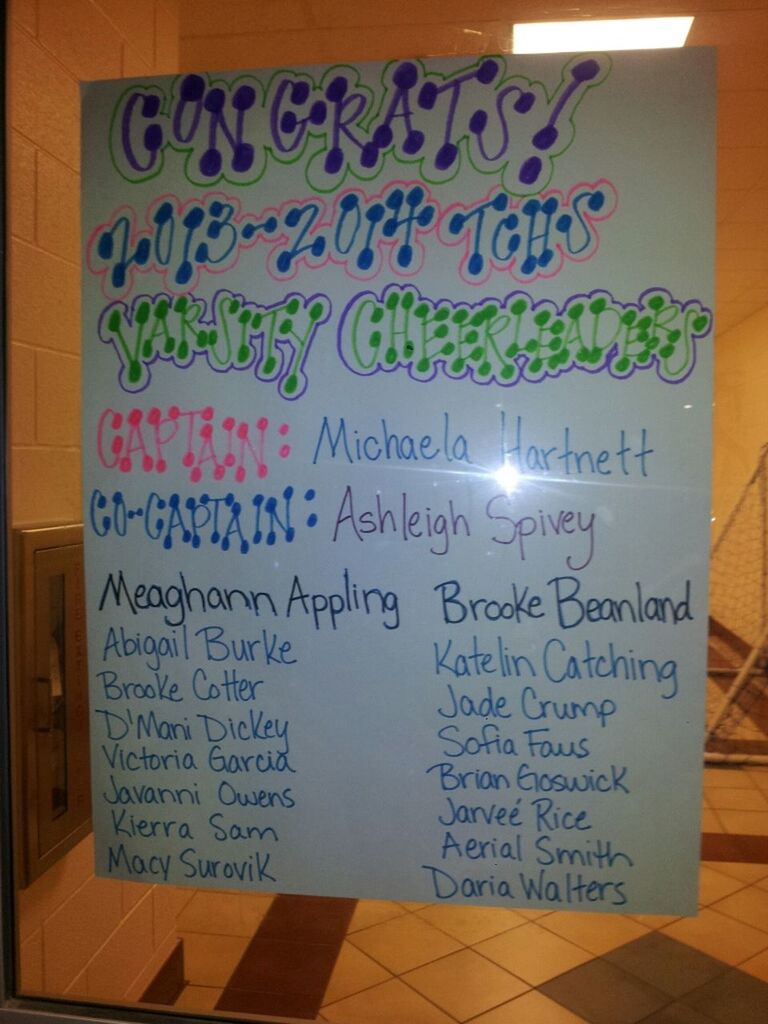 CONGRATS!
2013-2014 TCHS
VARSITY CHEERLEADERS
CAPTAIN: Michaela Hartnett
CO-CAPTAIN: Ashleigh Spivey
Meaghann Appling Brooke Beanland
Abigail Burke Katelin Catching
Brooke Cotter Jade Crump
D'Mani Dickey Sofia Faus
Victoria Garcia Brian Goswick
Javanni Owens Jarveé Rice
Kierra Sam Aerial Smith
Macy Surovik Daria Walters